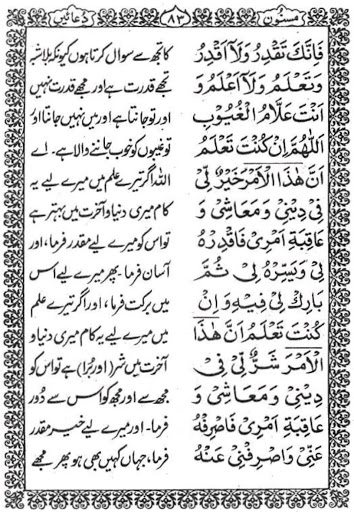 مسنون ﴿٨٣﴾ دُعائیں
فَاِنَّكَ تَقْدِرُ وَلَا اَقْدِرُ
وَتَعْلَمُ وَلَا اَعْلَمُ وَ
اَنْتَ عَلَّامُ الْغُيُوْبِ
اَللّٰهُمَّ اِنْ كُنْتَ تَعْلَمُ
اَنَّ هٰذَا الْاَمْرَ خَيْرٌ لِّيْ
فِيْ دِيْنِيْ وَمَعَاشِيْ وَ
عَاقِبَةِ اَمْرِيْ فَاقْدِرْهُ
لِيْ وَيَسِّرْهُ لِيْ ثُمَّ
بَارِكْ لِيْ فِيْهِ وَ اِنْ
كُنْتَ تَعْلَمُ اَنَّ هٰذَا
الْاَمْرَ شَرٌّ لِّيْ فِيْ
دِيْنِيْ وَمَعَاشِيْ وَ
عَاقِبَةِ اَمْرِيْ فَاصْرِفْهُ
عَنِّيْ وَاصْرِفْنِيْ عَنْهُ
کا تجھ سے سوال کرتا ہوں کیونکہ بلاشبہ
تجھے قدرت ہے اور مجھے قدرت نہیں
اور تو جانتا ہے اور میں نہیں جانتا اور
تو غیبوں کو خوب جاننے والا ہے۔ اے
اللہ اگر تیرے علم میں میرے لیے یہ
کام میری دنیا و آخرت میں بہتر ہے
تو اس کو میرے لیے مقدر فرما، اور
آسان فرما۔ پھر میرے لیے اس
میں برکت فرما، اور اگر تیرے علم
میں میرے لیے یہ کام میری دنیا و
آخرت میں شر (اور بُرا) ہے تو اس کو
مجھ سے اور مجھ کو اس سے دُور
فرما۔ اور میرے لیے خیر مقدر
فرما، جہاں کہیں بھی ہو پھر مجھے